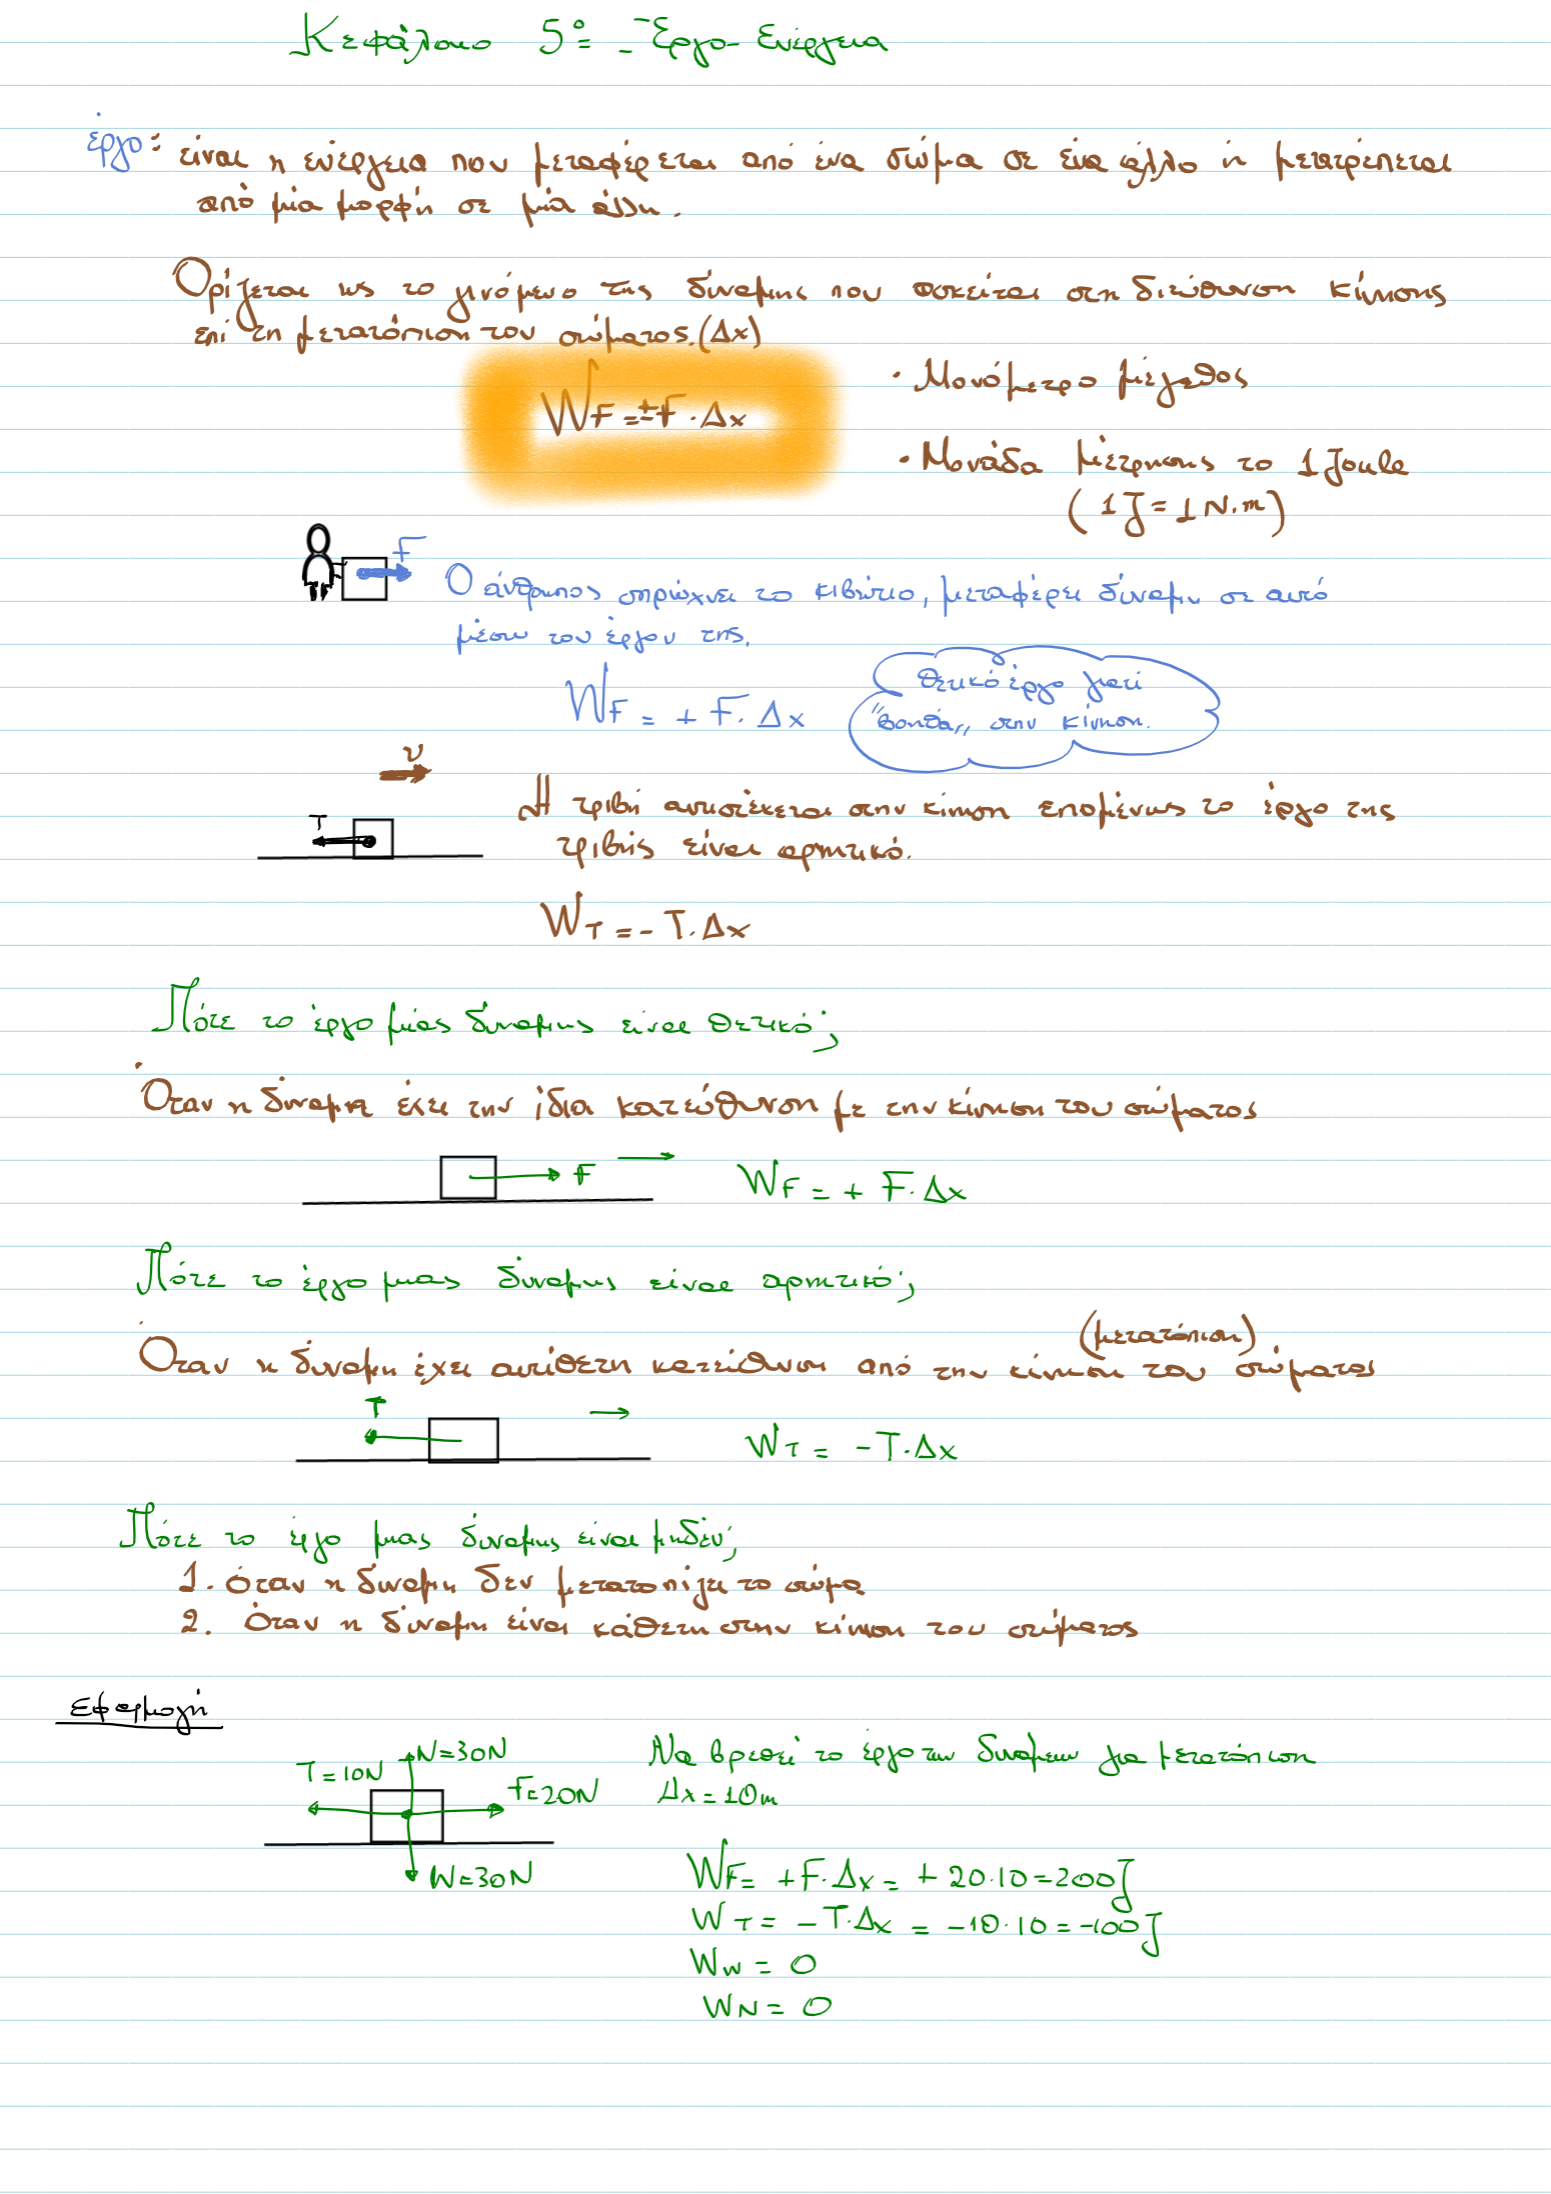 Κεφάλαιο 5º - Έργο - Ενέργεια
έργο: είναι η ενέργεια που μεταφέρεται από ένα σώμα σε ένα άλλο ή μετατρέπεται
από μία μορφή σε μία άλλη.
Ορίζεται ως το γινόμενο της δύναμης που ασκείται στη διεύθυνση κίνησης
επί τη μετατόπιση του σώματος. (Δx)
W_F = ±F · Δx
• Μονόμετρο μέγεθος
• Μονάδα μέτρησης το 1 Joule
(1J = 1N.m)
F
Ο άνθρωπος σπρώχνει το κιβώτιο, μεταφέρει δύναμη σε αυτό
μέσω του έργου της.
W_F = + F. Δx
θετικό έργο γιατί
"βοηθά" στην κίνηση.
υ
T
Η τριβή αντιστέκεται στην κίνηση επομένως το έργο της
τριβής είναι αρνητικό.
W_T = - T. Δx
Πότε το έργο μίας δύναμης είναι θετικό;
Όταν η δύναμη έχει την ίδια κατεύθυνση με την κίνηση του σώματος
F
W_F = + F. Δx
Πότε το έργο μιας δύναμης είναι αρνητικό;
(μετατόπιση)
Όταν η δύναμη έχει αντίθετη κατεύθυνση από την κίνηση του σώματος
T
W_T = -T. Δx
Πότε το έργο μιας δύναμης είναι μηδέν;
1. όταν η δύναμη δεν μετατοπίζει το σώμα
2. Όταν η δύναμη είναι κάθετη στην κίνηση του σώματος
Εφαρμογή
N=30N
T=10N
F=20N
W=30N
Να βρεθεί το έργο των δυνάμεων για μετατόπιση
Δx = 10m
W_F = +F. Δx = + 20.10 = 200J
W_T = -T. Δx = -10.10 = -100J
W_W = 0
W_N = 0